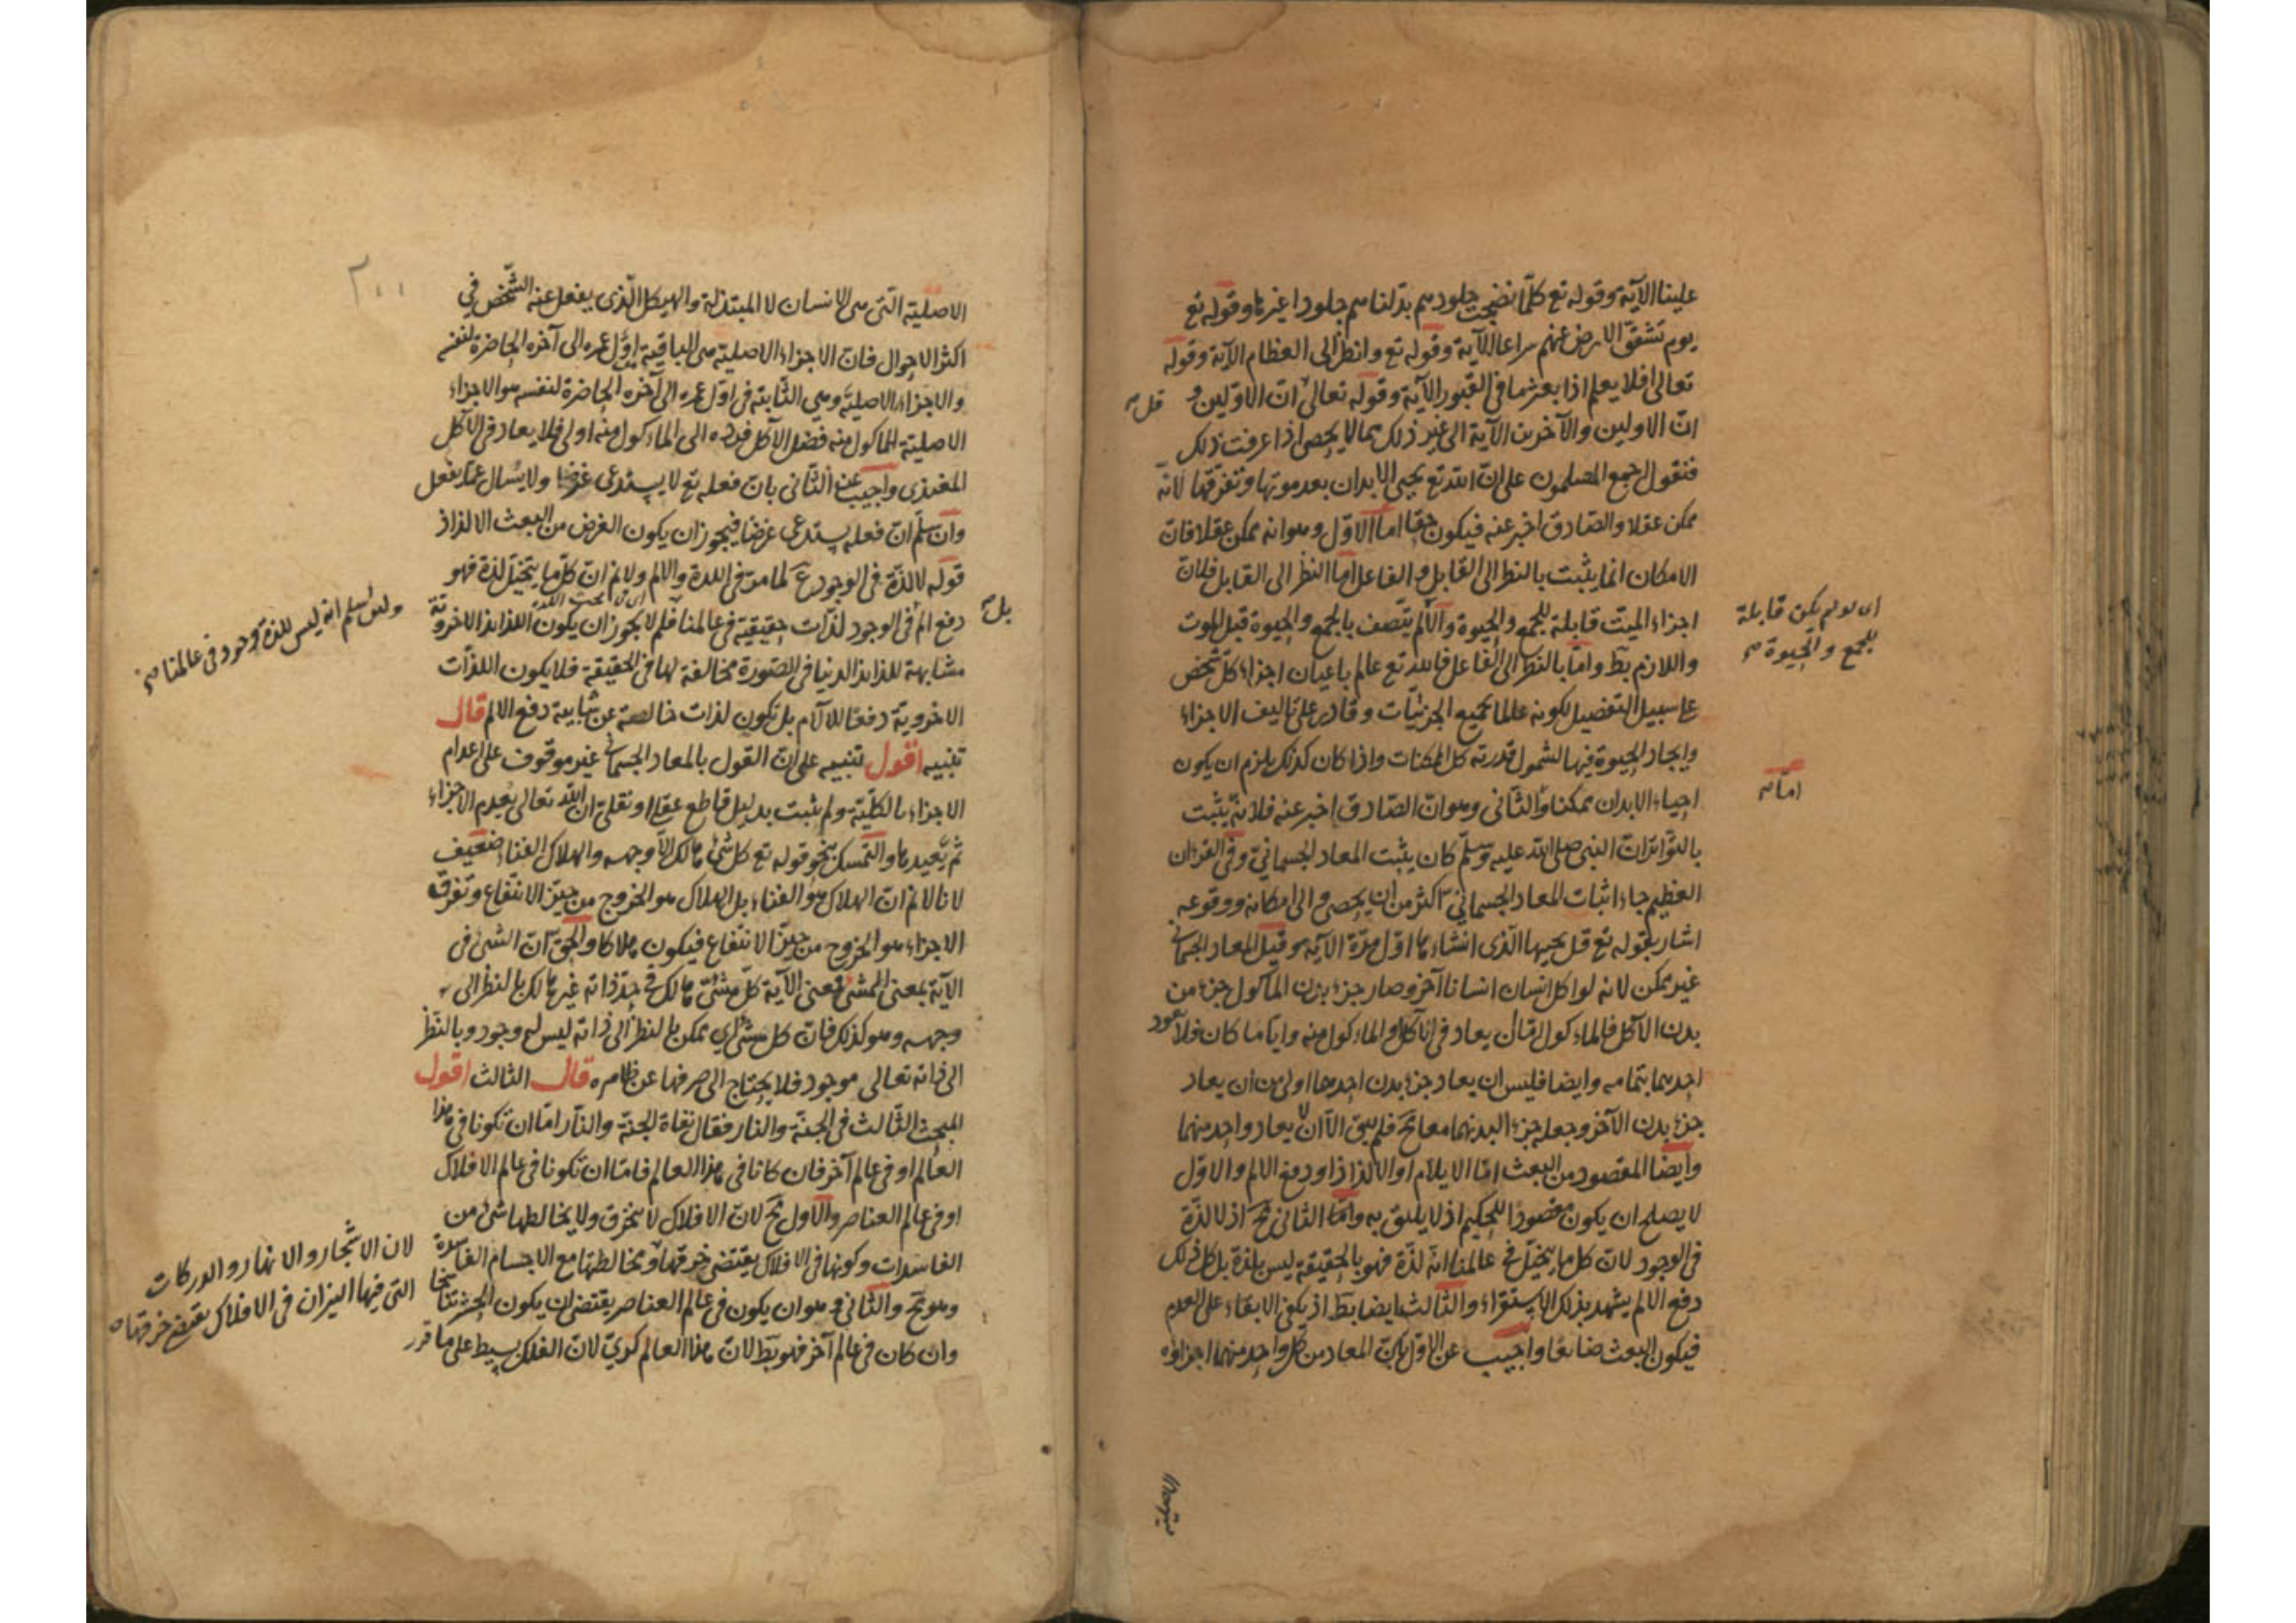 علينا الآية وقوله تع كلما نضجت جلودهم بدلناهم جلودا غيرها وقوله تع
يوم تشقق الارض عنهم سراعا الآية وقوله تع وانظر الى العظام الآية وقوله
تعالى افلا يعلم اذا بعثر ما في القبور الآية وقوله تعالى ان الاولين و
قل
ان الاولين والآخرين الآية الى غير ذلك مما لا يحصى اذا عرفت ذلك
فنقول اجمع المسلمون على ان الله تع يحيى الابدان بعد موتها وتفرقها لانه
ممكن عقلا والصادق اخبر عنه فيكون حقا اما الاول وهو انه ممكن عقلا فان
الامكان انما يثبت بالنظر الى القابل والفاعل اما النظر الى القابل فلان
اجزاء الميت قابلة للجمع والحيوة والا لم يتصف بالجمع والحيوة قبل الموت
اى لو لم يكن قابلة
للجمع والحيوة
واللازم بط واما بالنظر الى الفاعل فالله تع عالم باعيان اجزاء كل شخص
على سبيل التفصيل لكونه عالما بجميع الجزئيات وقادر على تاليف الاجزاء
وايجاد الحيوة فيها لشمول قدرته كل الممكنات واذا كان كذلك يلزم ان يكون
احياء الابدان ممكنا والثانى وهو ان الصادق اخبر عنه فلانه يثبت
اما
بالتواتر ان النبى صلى الله عليه وسلم كان يثبت المعاد الجسمانى وفى القرءان
العظيم جاء اثبات المعاد الجسمانى اكثر من ان يحصى والى امكانه ووقوعه
اشار بقوله تع قل يحييها الذى انشاءها اول مرة الآية وقيل المعاد الجسمانى
غير ممكن لانه لو اكل انسان انسانا آخر وصار جزء بدن الماكول جزء من
بدن الآكل فالماءكول اما ان يعاد فى الآكل او الماءكول منه وايا ما كان فلا يعود
احدهما بتمامه وايضا فليس ان يعاد جزء بدن احدهما اولى من ان يعاد
جزء بدن الآخر وجعله جزء البدنهما معا مح فلم يبق الا ان لا يعاد واحد منهما
وايضا المقصود من البعث اما الايلام او الالذاذ او دفع الالم والاول
لا يصلح ان يكون مقصودا للحكيم اذ لا يليق به واما الثانى مح اذ لا لذة
فى الوجود لان كل ما يتخيل فى عالمنا انه لذة فهو بالحقيقة ليس بلذة بل كل ذلك
دفع الالم يشهد بذلك الاستقراء والثالث ايضا بط اذ يكفى الابقاء على العدم
فيكون البعث ضائعا واجيب عن الاول بان المعاد من كل واحد منهما اجزاؤه
الاصلية التى هى الانسان لا المبتذلة والهيكل الذى يغفل عنه الشخص فى
اكثر الاحوال فان الاجزاء الاصلية هى الباقية اول عمره الى آخره الحاضرة لنفسه
والاجزاء الاصلية وهى الثابتة فى اول عمره الى آخره الحاضرة لنفسه هو الاجزاء
الاصلية الماكول منه فضل الآكل فرده الى الماءكول منه اولى فلا يعاد فى الآكل
المغتذى واجيب عن الثانى بان فعله تع لا يستدعى غرضا ولا يسال عما يفعل
وان سلم ان فعله يستدعى غرضا فيجوز ان يكون الغرض من البعث الالذاذ
قوله لا لذة فى الوجود مم لما مر فى اللذة والالم ولانم ان كل ما يتخيل لذة فهو
دفع الم فى الوجود لذات حقيقية فى عالمنا فلم لا يجوز ان يكون اللذائذ الاخروية
بل
ولئن سلم انه ليس للذة وجود فى عالمنا
مشابهة للذائذ الدنيا فى الصورة مخالفة لها فى الحقيقة فلا يكون اللذات
الاخروية دفعا للآلام بل تكون لذات خالصة عن شايبة دفع الالم قال
تنبيه اقول تنبيه على ان القول بالمعاد الجسمانى غير موقوف على اعدام
الاجزاء بالكلية ولم يثبت بدليل قاطع عقلى او نقلى ان الله تعالى يعدم الاجزاء
ثم يعيدها والتمسك بنحو قوله تع كل شئ هالك الا وجهه والهلاك الفناء ضعيف
لانا لانم ان الهلاك هو الفناء بل الهلاك هو الخروج من حيز الانتفاع وتفرق
الاجزاء هو الخروج من حيز الانتفاع فيكون هلاكا والحق ان الشئ فى
الآية بمعنى المشئ فمعنى الآية كل مشئ هالك فى حد ذاته غير هالك بالنظر الى
وجهه وهو كذلك فان كل مشئ اى ممكن بالنظر الى ذاته ليس له وجود وبالنظر
الى ذاته تعالى موجود فلا يحتاج الى صرفها عن ظاهره قال الثالث اقول
المبحث الثالث فى الجنة والنار فقال نفاة الجنة والنار اما ان تكونا فى هذا
العالم او فى عالم آخر فان كانا فى هذا العالم فاما ان تكونا فى عالم الافلاك
او فى عالم العناصر والاول مح لان الافلاك لا تنخرق ولا يخالطها شئ من
الفاسدات وكونها فى الافلاك يقتضى خرقها ومخالطتها مع الاجسام الفاسدة
لان الاشجار والانهار والدركات
التى فيها النيران فى الافلاك يقتضى خرقها
وهو مح والثانى وهو ان يكون فى عالم العناصر يقتضى ان يكون الحشر تناسخا
وان كان فى عالم آخر فهو بط لان هذا العالم كرى لان الفلك بسيط على ما قرر
٢٠٠